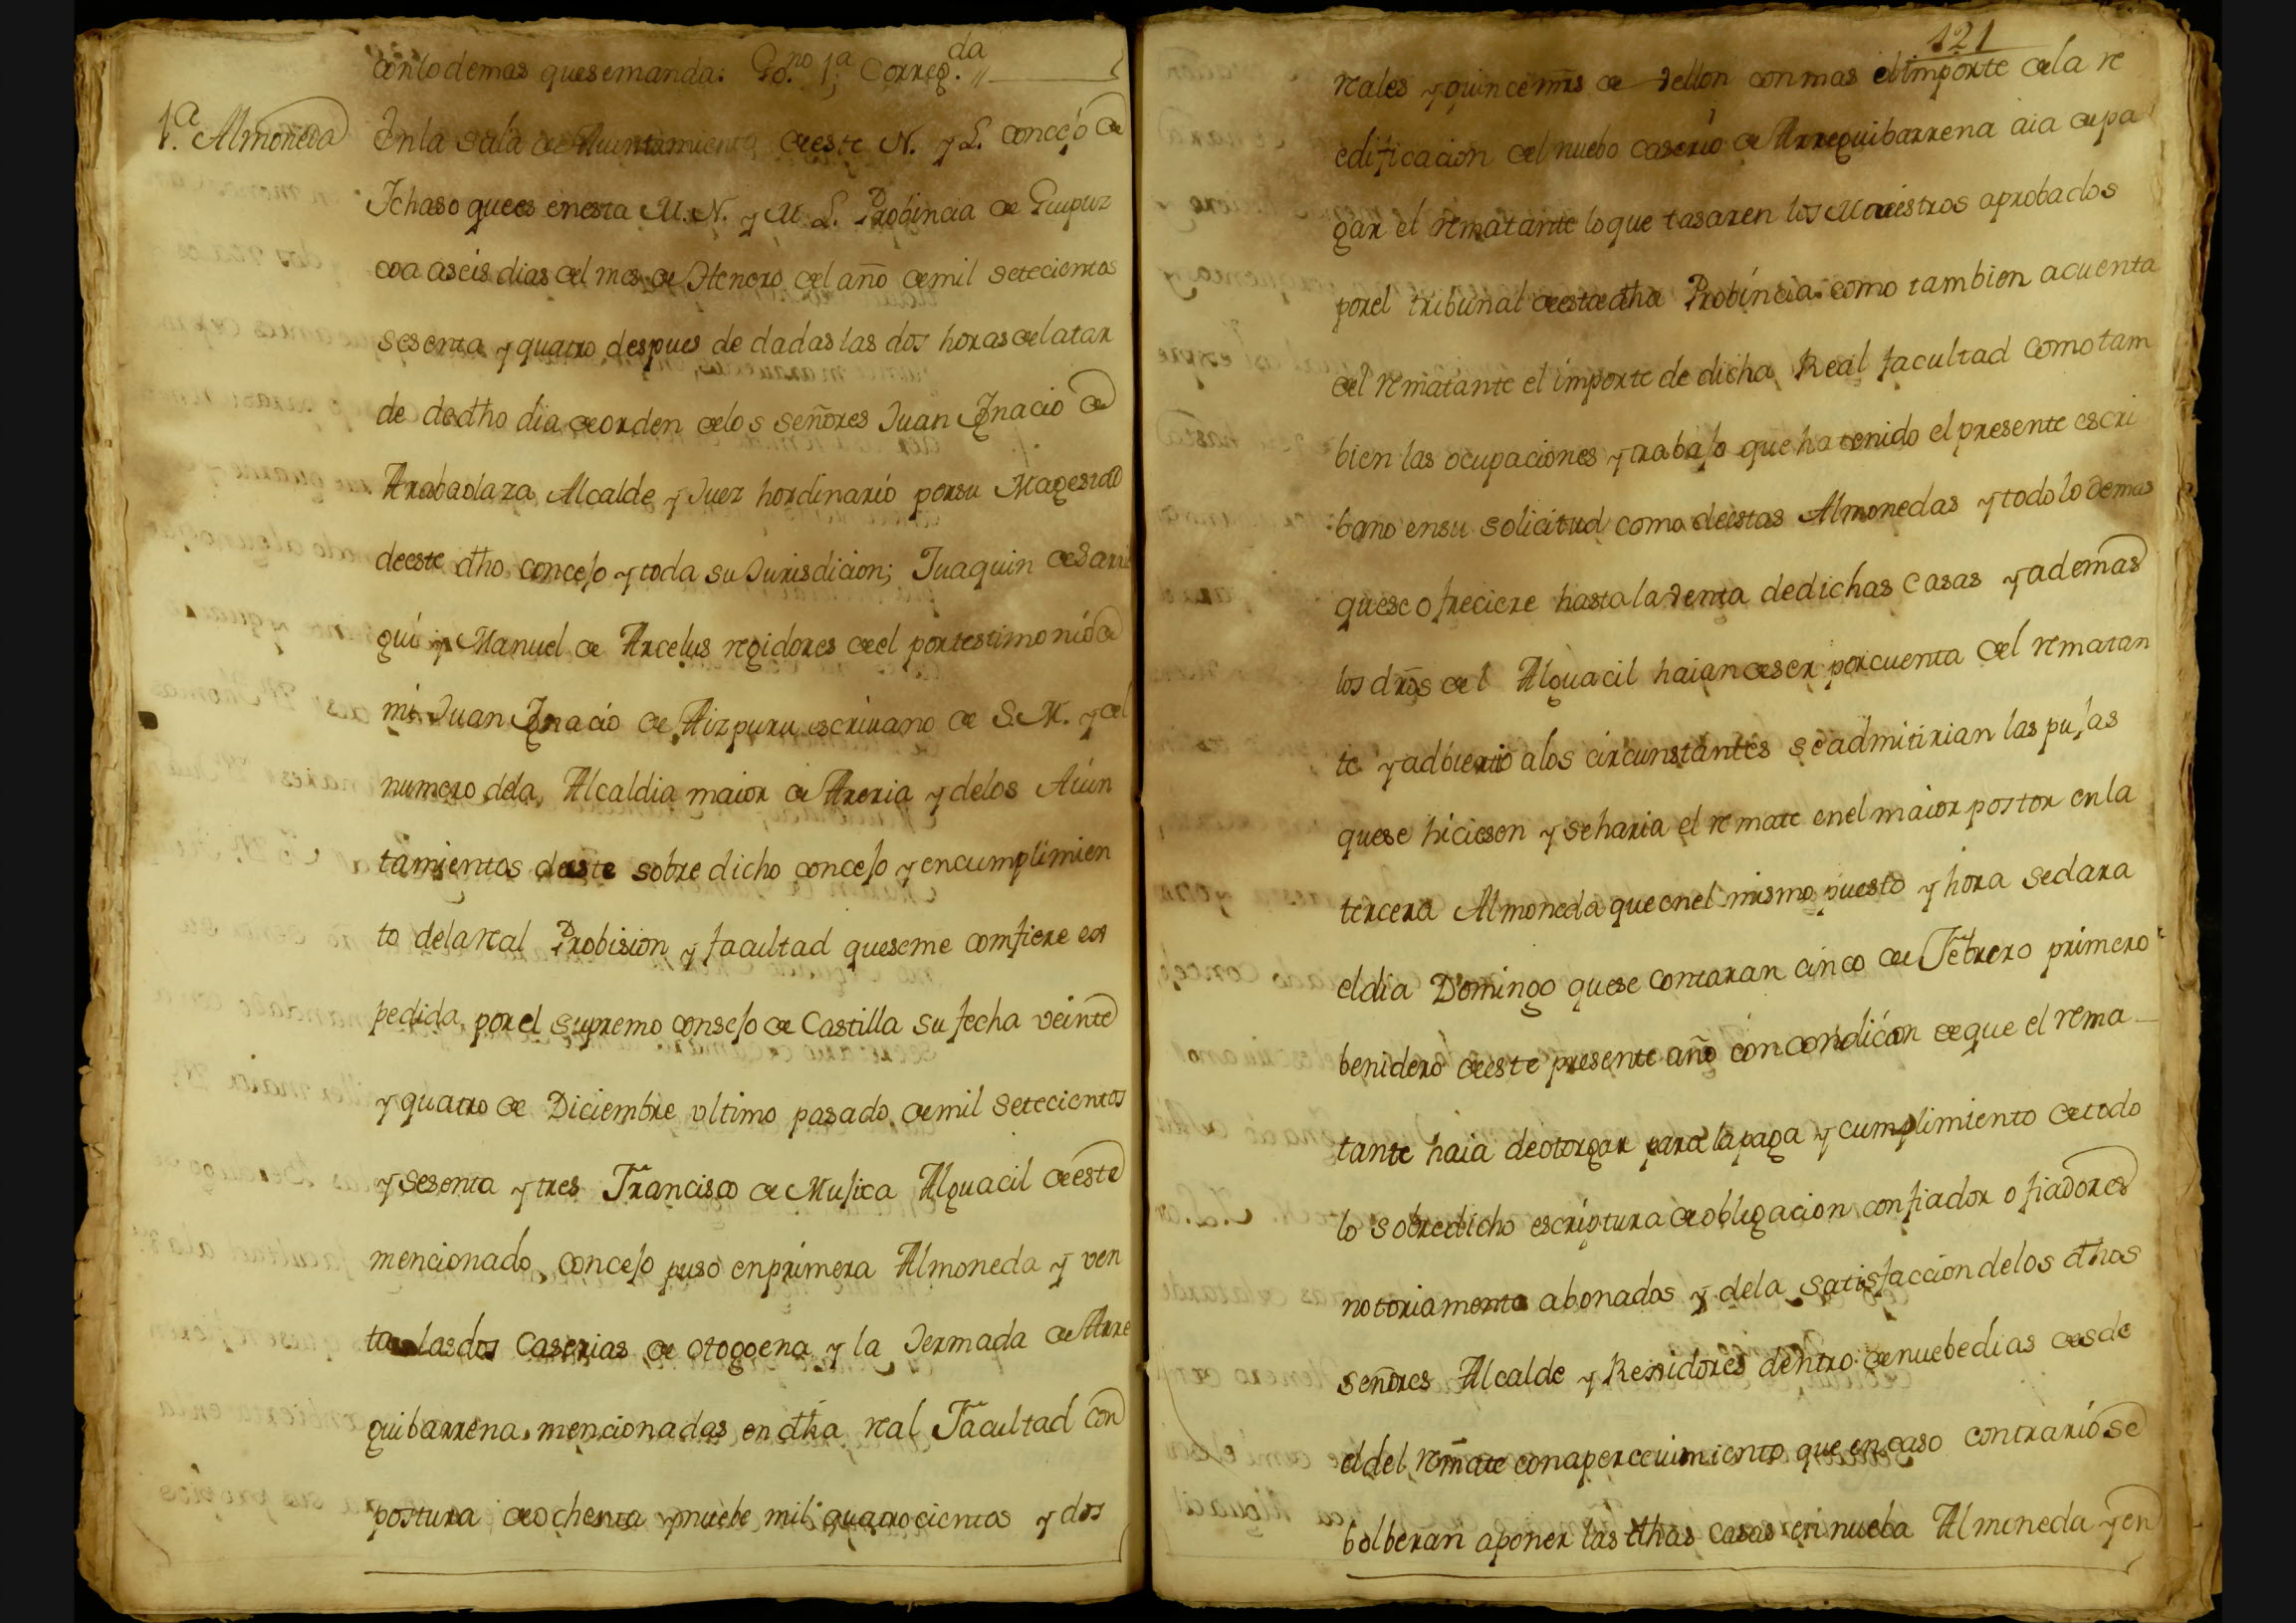 con lo demas que se manda: Go.no 1.a Correg.da
1.a Almoneda
En la Sala de Auntamiento de este N. y L. concejo de
Ichaso que es en esta M. N. y M. L. Probincia de Guipuz
coa a seis dias del mes de Henero del año de mil setecientos
sesenta y quatro despues de dadas las dos horas de la tar
de de dho dia de orden de los señores Juan Ignacio de
Arabaolaza Alcalde y Juez hordinario por su Magestad
de este dho concejo y toda su Jurisdicion; Juaquin de Sarri
gui y Manuel de Arcelus regidores de el por testimonio de
mi Juan Ignacio de Aizpuru escrivano de S. M. y del
numero de la Alcaldia maior de Areria y de los Aiun
tamientos de este sobre dicho concejo y en cumplimien
to de la real Probision y facultad que se me comfiere es
pedida por el supremo consejo de Castilla su fecha veinte
y quatro de Diciembre ultimo pasado de mil setecientos
y sesenta y tres Francisco de Mujica Alguacil de este
mencionado concejo puso en primera Almoneda y ven
ta las dos Caserias de Otogoena y la Iermada de Arre
guibarrena mencionadas en dha real Facultad con
postura de ochenta y nuebe mil quatrocientos y dos
121
reales y quince mrs de vellon con mas el importe de la re
edificacion del nuebo caserio de Arreguibarrena aia de pa
gar el rematante lo que tasaren los Maiestros aprobados
por el tribunal de esta dha Probincia: como tambien a cuenta
del rematante el importe de dicha Real facultad como tam
bien las ocupaciones y trabajo que ha tenido el presente escri
bano en su solicitud como de estas Almonedas y todo lo demas
que se ofreciere hasta la venta de dichas Casas y ademas
los dros del Alguacil haian de ser por cuenta del rematan
te y adbierto a los circunstantes se admitirian las pujas
que se hiciesen y se haria el remate en el maior postor en la
tercera Almoneda que en el mismo puesto y hora se dara
el dia Domingo que se contaran cinco de Febrero primero
benidero de este presente año con condicion de que el rema
tante haia de otorgar para la paga y cumplimiento de todo
lo sobredicho escriptura de obligacion con fiador o fiadores
notoriamente abonados y de la satisfaccion de los dhos
señores Alcalde y Rexidores dentro de nuebe dias desde
el del remate con apercevimiento que en caso contrario se
bolberan a poner las dhas casas en nueba Almoneda y en